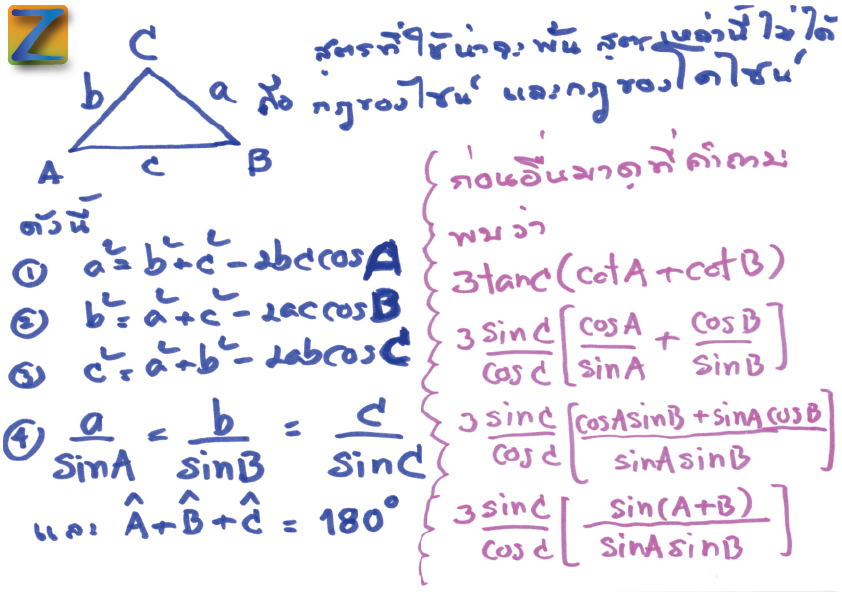 Z
สูตรที่ใช้น่าจะพ้น สูตรเหล่านี้ไม่ได้
คือ กฎของไซน์ และกฎของโคไซน์
C
b a
A c B
ดังนี้
① a² = b² + c² - 2bc cos A
② b² = a² + c² - 2ac cos B
③ c² = a² + b² - 2ab cos C
④ a/sinA = b/sinB = c/sinC
และ Â + B̂ + Ĉ = 180°
ก่อนอื่นมาดูที่คำถาม
พบว่า
3tanC(cotA + cotB)
3 sinC/cosC [cosA/sinA + cosB/sinB]
3 sinC/cosC [(cosAsinB + sinAcosB)/sinAsinB]
3 sinC/cosC [sin(A+B)/sinAsinB]